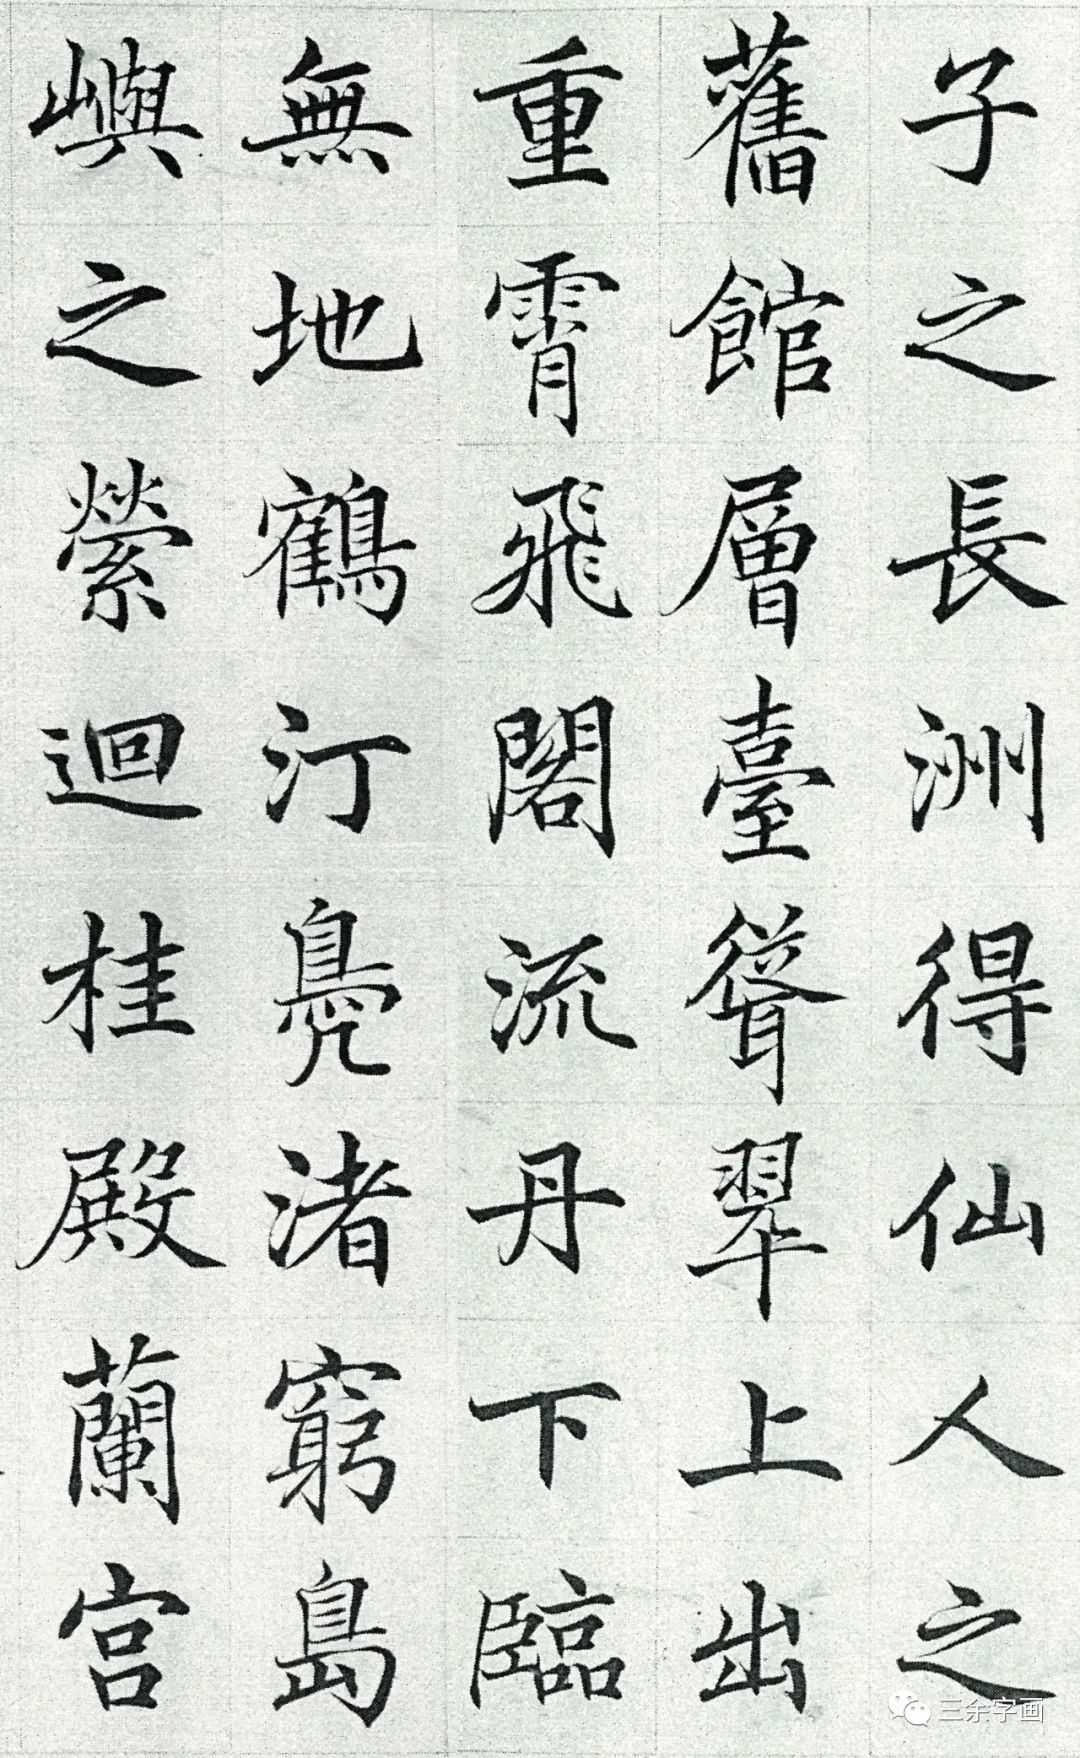 子之長洲得仙人之
舊館層臺聳翠上出
重霄飛閣流丹下臨
無地鶴汀鳧渚窮島
嶼之縈迴桂殿蘭宮
三余字画